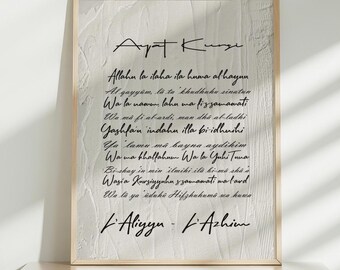 Ayat Kursi
Allahu la ilaha illa huwa al hayyu
Al qayyum, la ta'khudhuhu sinatun
Wa la nawm lahu ma fi ssamawati
Wa ma fi al-ardi, man dha al-ladhi
Yashfa'u indahu illa bi-idhnihi
Ya'lamu ma bayna aydihim
Wa ma khalfahum Wa la Yuhituna
Bi-shay'in min 'ilmihi illa bi-ma sha'a
Wasi'a Kursiyyuhu ssamawati wa l ard
Wa la ya'uduhu Hifzhuhuma wa huwa
L'Aliyyu - L'Azhim